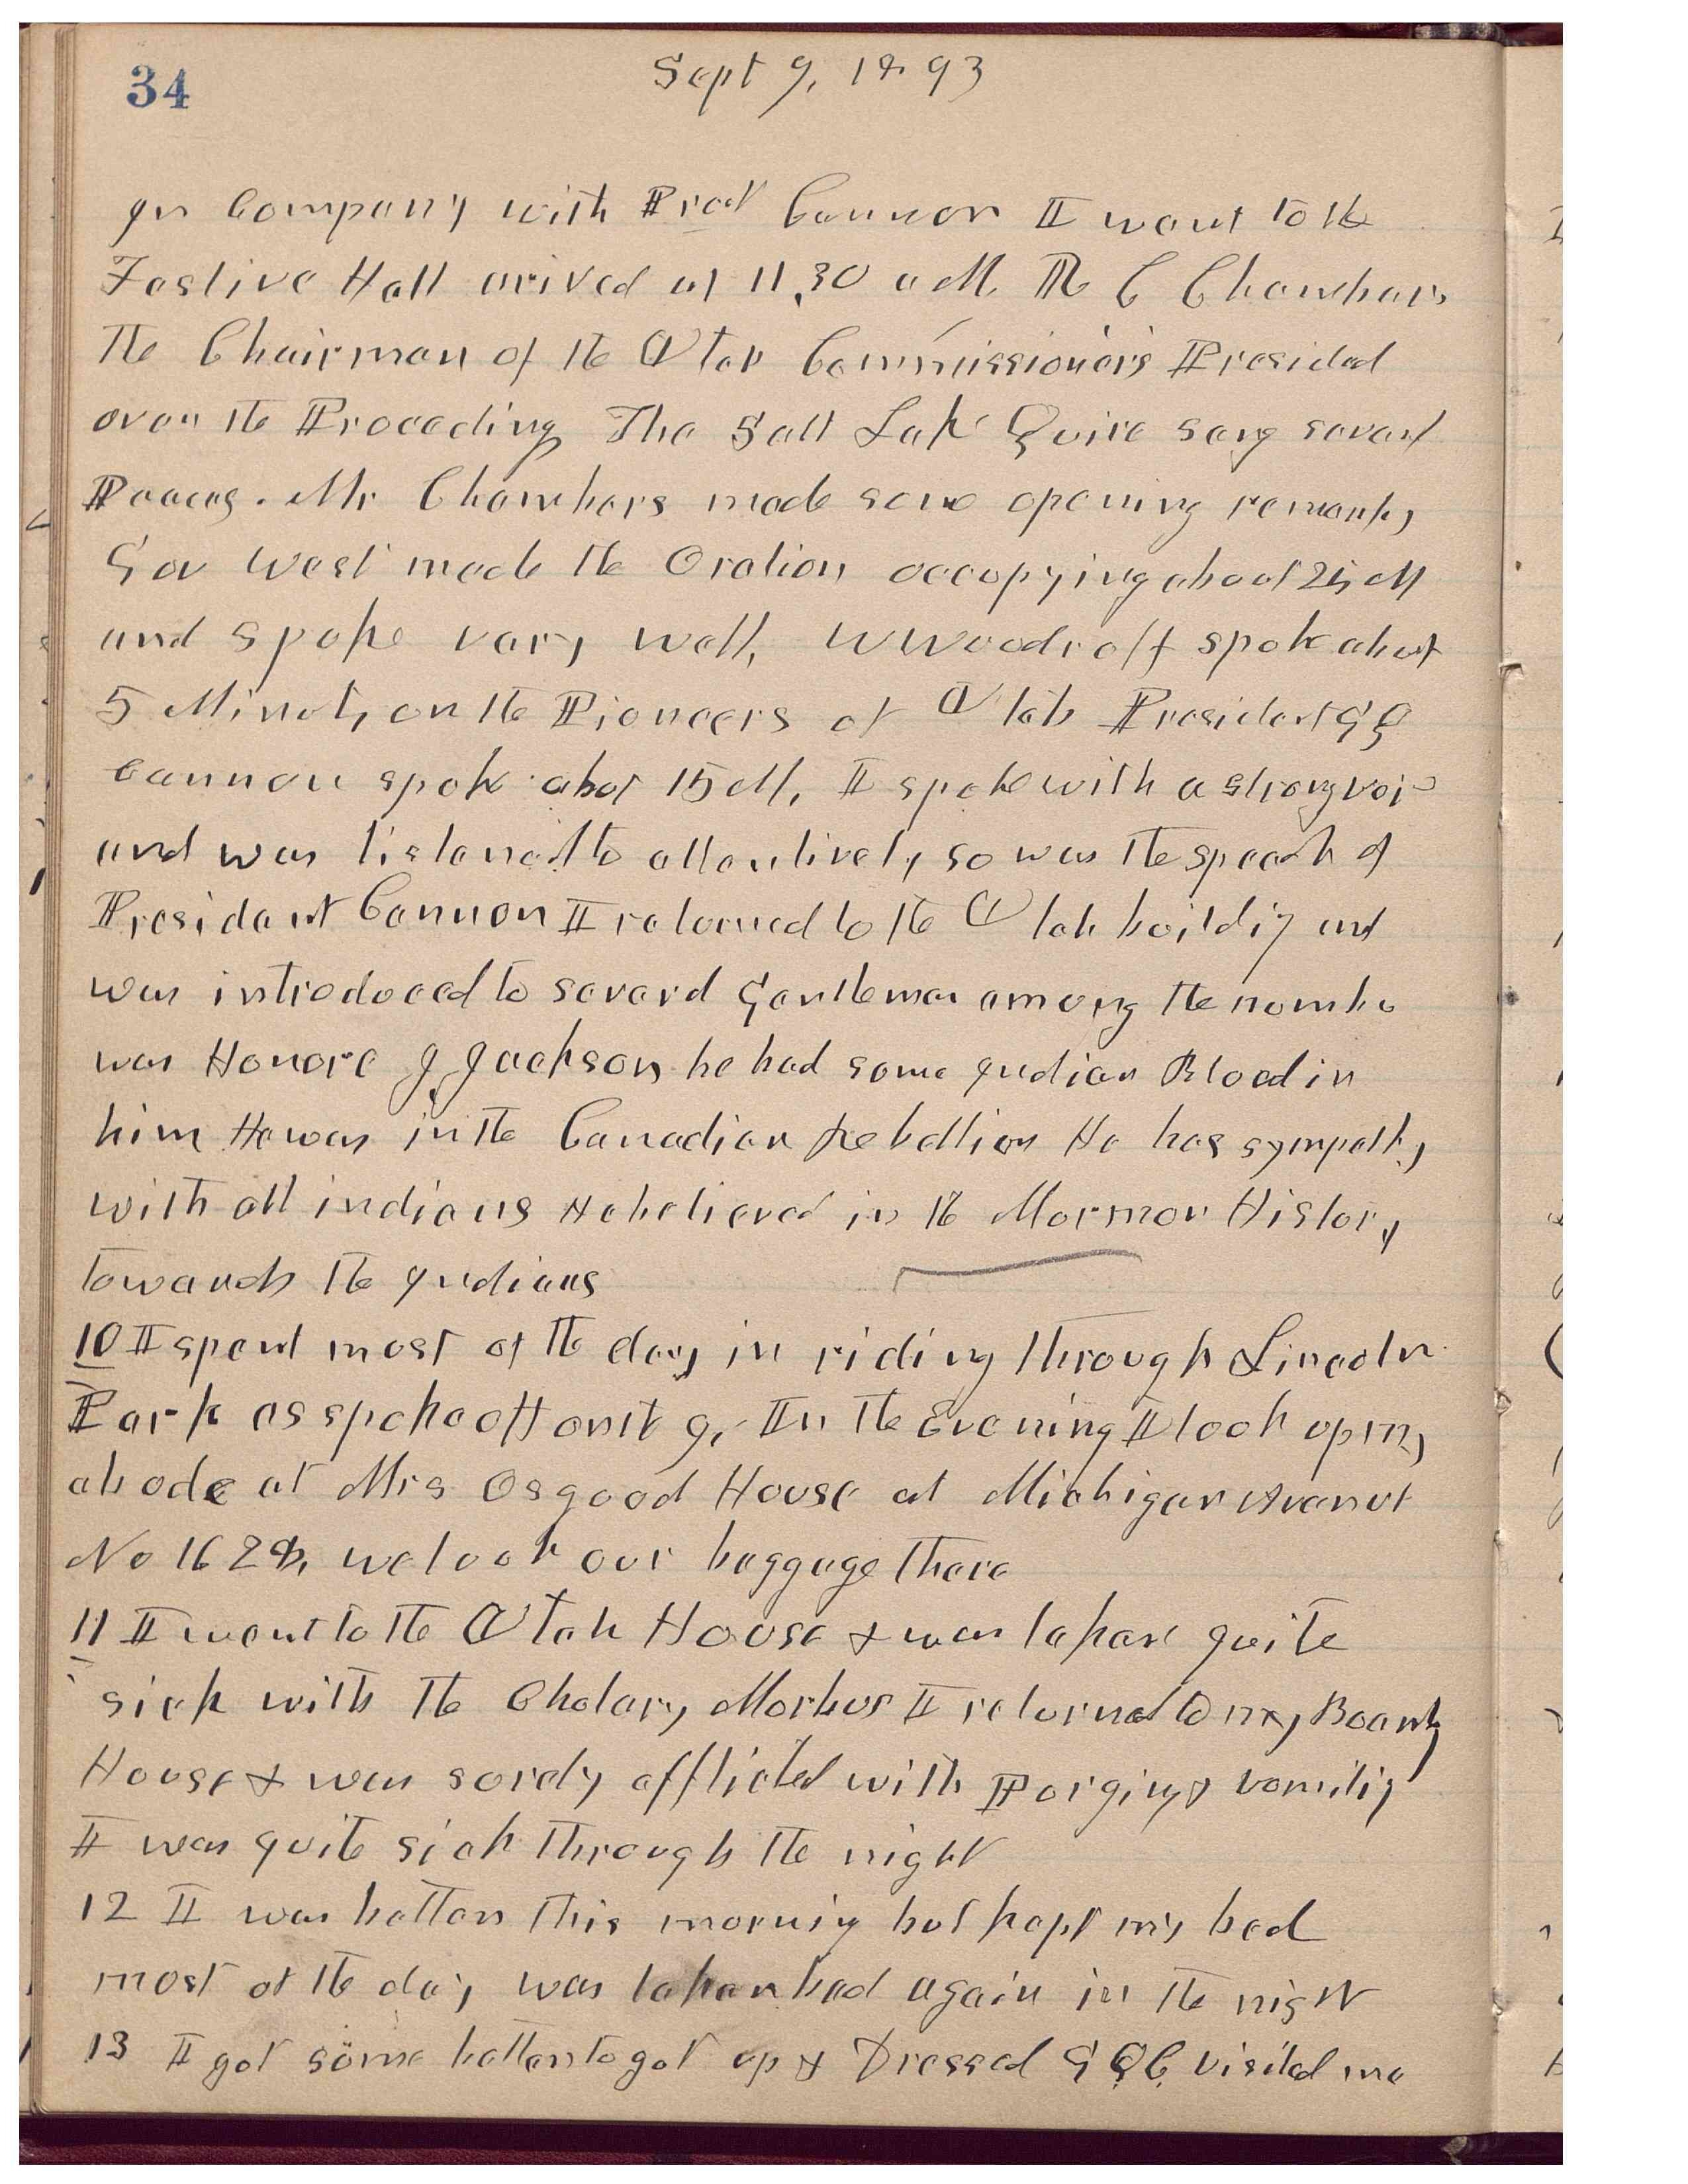 34
Sept 9, 1893
In Company with Prest Cannon I went to the
Festive Hall arived at 11,30 a M. R C Chambers
The Chairman of the Utah Commissioners Presided
over the Proceeding The Salt Lake Quire sang several
Peaces. Mr Chambers made some opening remarks
Gov West made the Oration occupying about 25 M
and spoke very well, W Woodruff spoke about
5 Minuts, on the Pioneers of Utah President G Q
Cannon spoke about 15 M, I spoke with a strong voice
and was listened to attentively, so was the speech of
President Cannon I returned to the Utah building and
was introduced to several Gentlemen among the number
was Honore J Jackson he had some Indian Blood in
him He was in the Canadian Rebellion He has sympathy
with all indians He believed in the Mormon History
towards the Indians
10 I spent most of the day in riding through Lincoln
Park as spoke off on the 9, In the Evening I took up my
abode at Mrs Osgood House at Michigan Avenue
No 1628, we took our baggage there
11 I went to the Utah House & was taken quite
sick with the Cholary Morbus I returned to my Boarding
House & was sorely afflicted with Purging & vomiting
I was quite sick through the night
12 I was better this morning but kept my bed
most of the day was taken bad again in the night
13 I got some better to get up & Dressed G Q C visited me